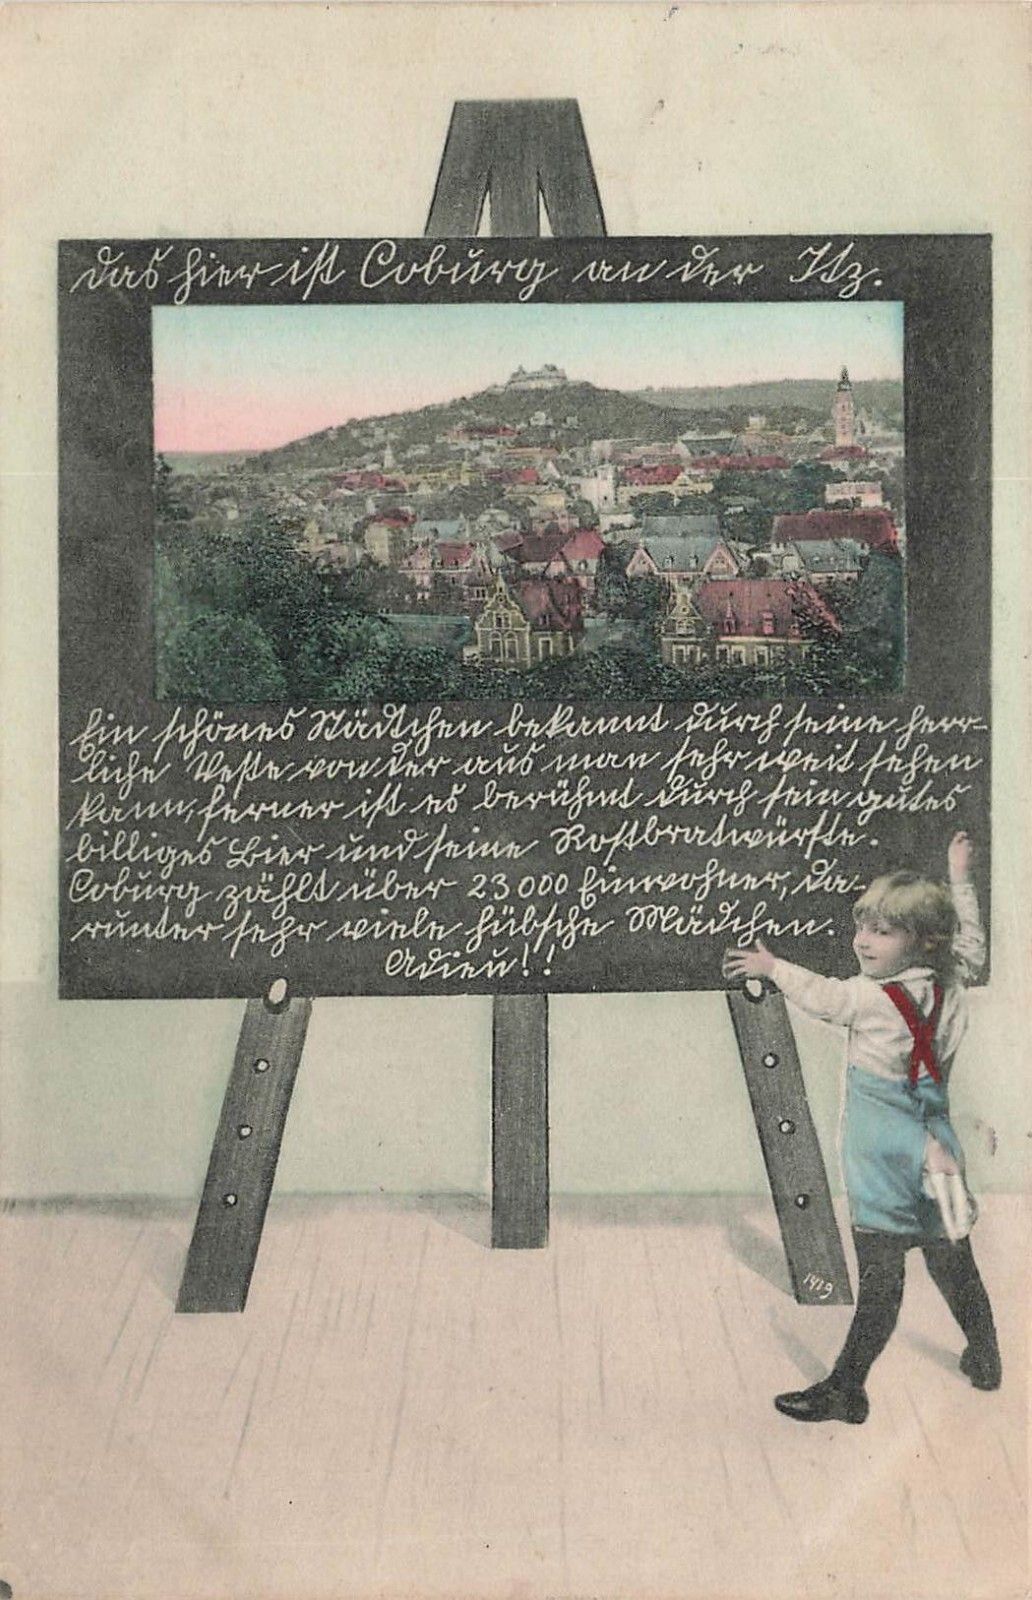 Das hier ist Coburg an der Itz.
Ein schönes Städtchen bekannt durch seine herr-
liche Veste von der aus man sehr weit sehen
kann, ferner ist es berühmt durch sein gutes
billiges Bier und seine Rostbratwürste.
Coburg zählt über 23000 Einwohner, da-
runter sehr viele hübsche Mädchen.
Adieu!!
1419